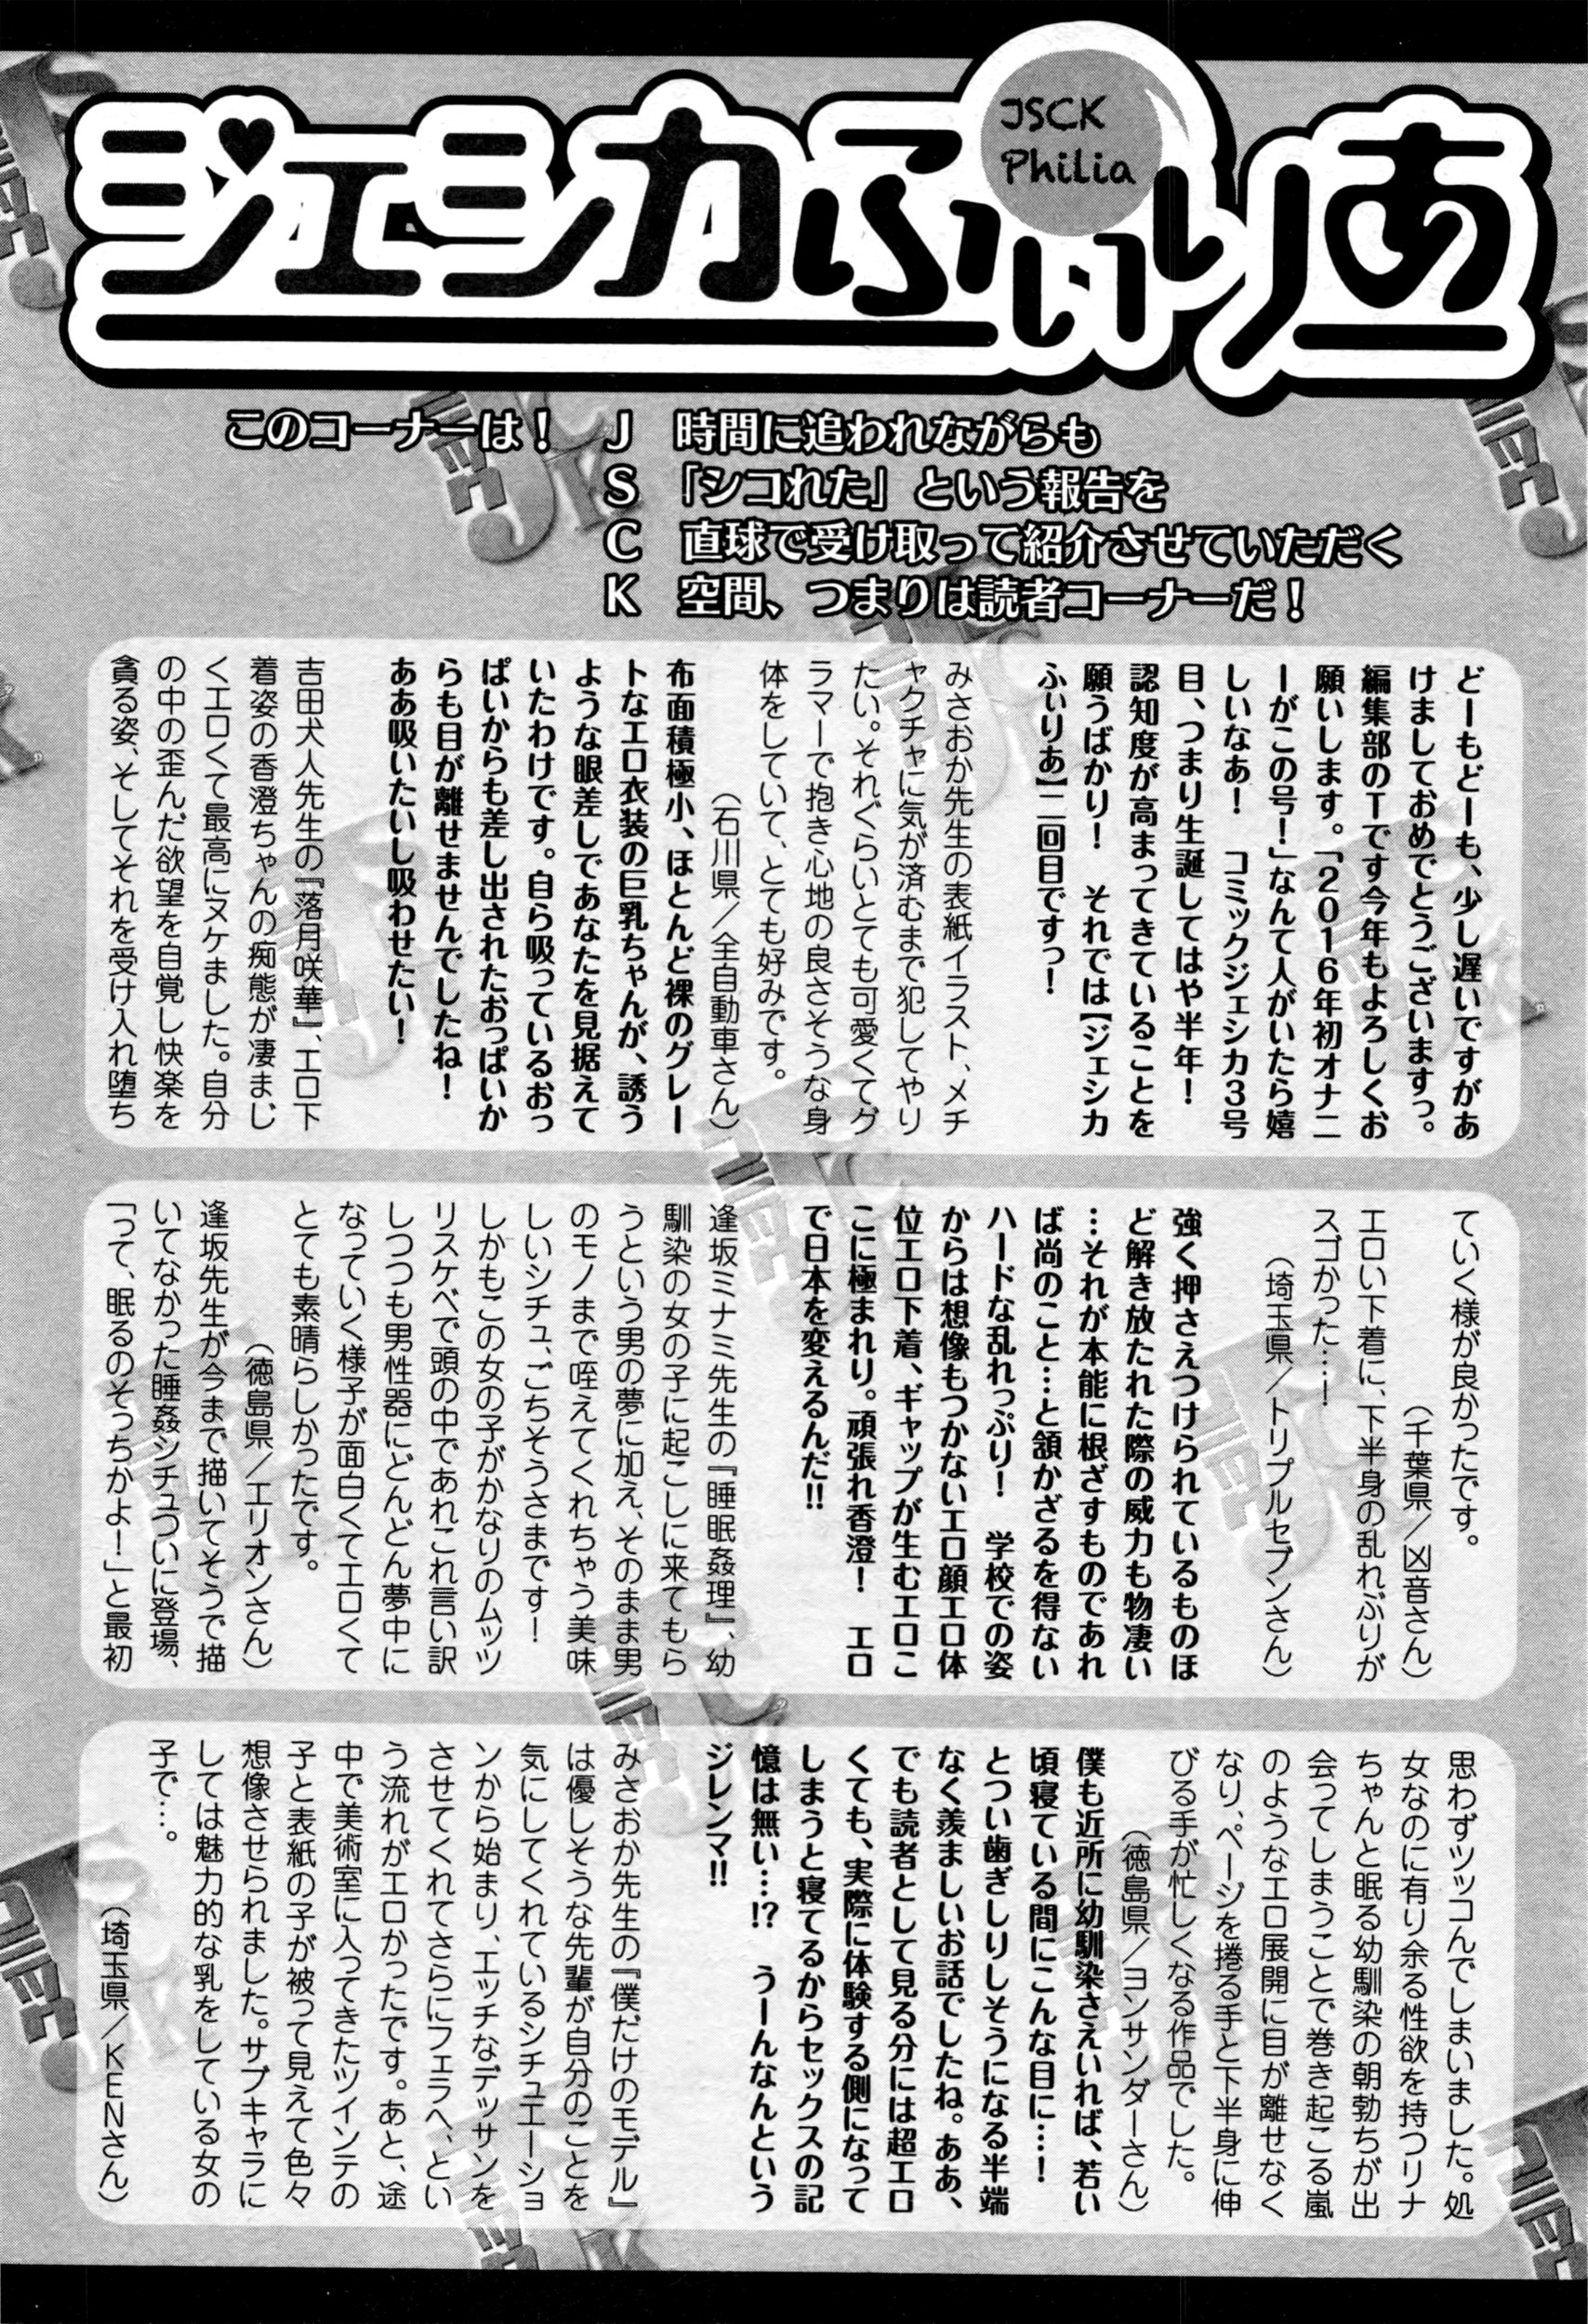 ジェシカふぃりあ
JSCK
Philia
このコーナーは！
J 時間に追われながらも
S 「シコれた」という報告を
C 直球で受け取って紹介させていただく
K 空間、つまりは読者コーナーだ！
どーもどーも、少し遅いですがあ
けましておめでとうございますっ。
編集部のTです今年もよろしくお
願いします。「2016年初オナニ
ーがこの号！」なんて人がいたら嬉
しいなあ！　コミックジェシカ3号
目、つまり生誕してはや半年！
認知度が高まってきていることを
願うばかり！　それでは【ジェシカ
ふぃりあ】二回目ですっ！
みさおか先生の表紙イラスト、メチ
ャクチャに気が済むまで犯してやり
たい。それぐらいとても可愛くてグ
ラマーで抱き心地の良さそうな身
体をしていて、とても好みです。
（石川県／全自動車さん）
布面積極小、ほとんど裸のグレー
トなエロ衣装の巨乳ちゃんが、誘う
ような眼差しであなたを見据えて
いたわけです。自ら吸っているおっ
ぱいからも差し出されたおっぱいか
らも目が離せませんでしたね！
ああ吸いたいし吸わせたい！
吉田犬人先生の『落月咲華』、エロ下
着姿の香澄ちゃんの痴態が凄まじ
くエロくて最高にヌケました。自分
の中の歪んだ欲望を自覚し快楽を
貪る姿、そしてそれを受け入れ堕ち
ていく様が良かったです。
（千葉県／凶音さん）
エロい下着に、下半身の乱れぶりが
スゴかった…！
（埼玉県／トリプルセブンさん）
強く押さえつけられているものほ
ど解き放たれた際の威力も物凄い
…それが本能に根ざすものであれ
ば尚のこと…と頷かざるを得ない
ハードな乱れっぷり！　学校での姿
からは想像もつかないエロ顔エロ体
位エロ下着、ギャップが生むエロこ
こに極まれり。頑張れ香澄！　エロ
で日本を変えるんだ!!
逢坂ミナミ先生の『睡眠姦理』、幼
馴染の女の子に起こしに来てもら
うという男の夢に加え、そのまま男
のモノまで咥えてくれちゃう美味
しいシチュ、ごちそうさまです！
しかもこの女の子がかなりのムッツ
リスケベで頭の中であれこれ言い訳
しつつも男性器にどんどん夢中に
なっていく様子が面白くてエロくて
とても素晴らしかったです。
（徳島県／エリオンさん）
逢坂先生が今まで描いてそうで描
いてなかった睡姦シチュついに登場、
「って、眠るのそっちかよ！」と最初
思わずツッコんでしまいました。処
女なのに有り余る性欲を持つリナ
ちゃんと眠る幼馴染の朝勃ちが出
会ってしまうことで巻き起こる嵐
のようなエロ展開に目が離せなく
なり、ページを捲る手と下半身に伸
びる手が忙しくなる作品でした。
（徳島県／ヨンサンダーさん）
僕も近所に幼馴染さえいれば、若い
頃寝ている間にこんな目に…！
とつい歯ぎしりしそうになる半端
なく羨ましいお話でしたね。ああ、
でも読者として見る分には超エロ
くても、実際に体験する側になって
しまうと寝てるからセックスの記
憶は無い…!?　うーんなんという
ジレンマ!!
みさおか先生の『僕だけのモデル』
は優しそうな先輩が自分のことを
気にしてくれているシチュエーショ
ンから始まり、エッチなデッサンを
させてくれてさらにフェラへ、とい
う流れがエロかったです。あと、途
中で美術室に入ってきたツインテの
子と表紙の子が被って見えて色々
想像させられました。サブキャラに
しては魅力的な乳をしている女の
子で…。
（埼玉県／KENさん）